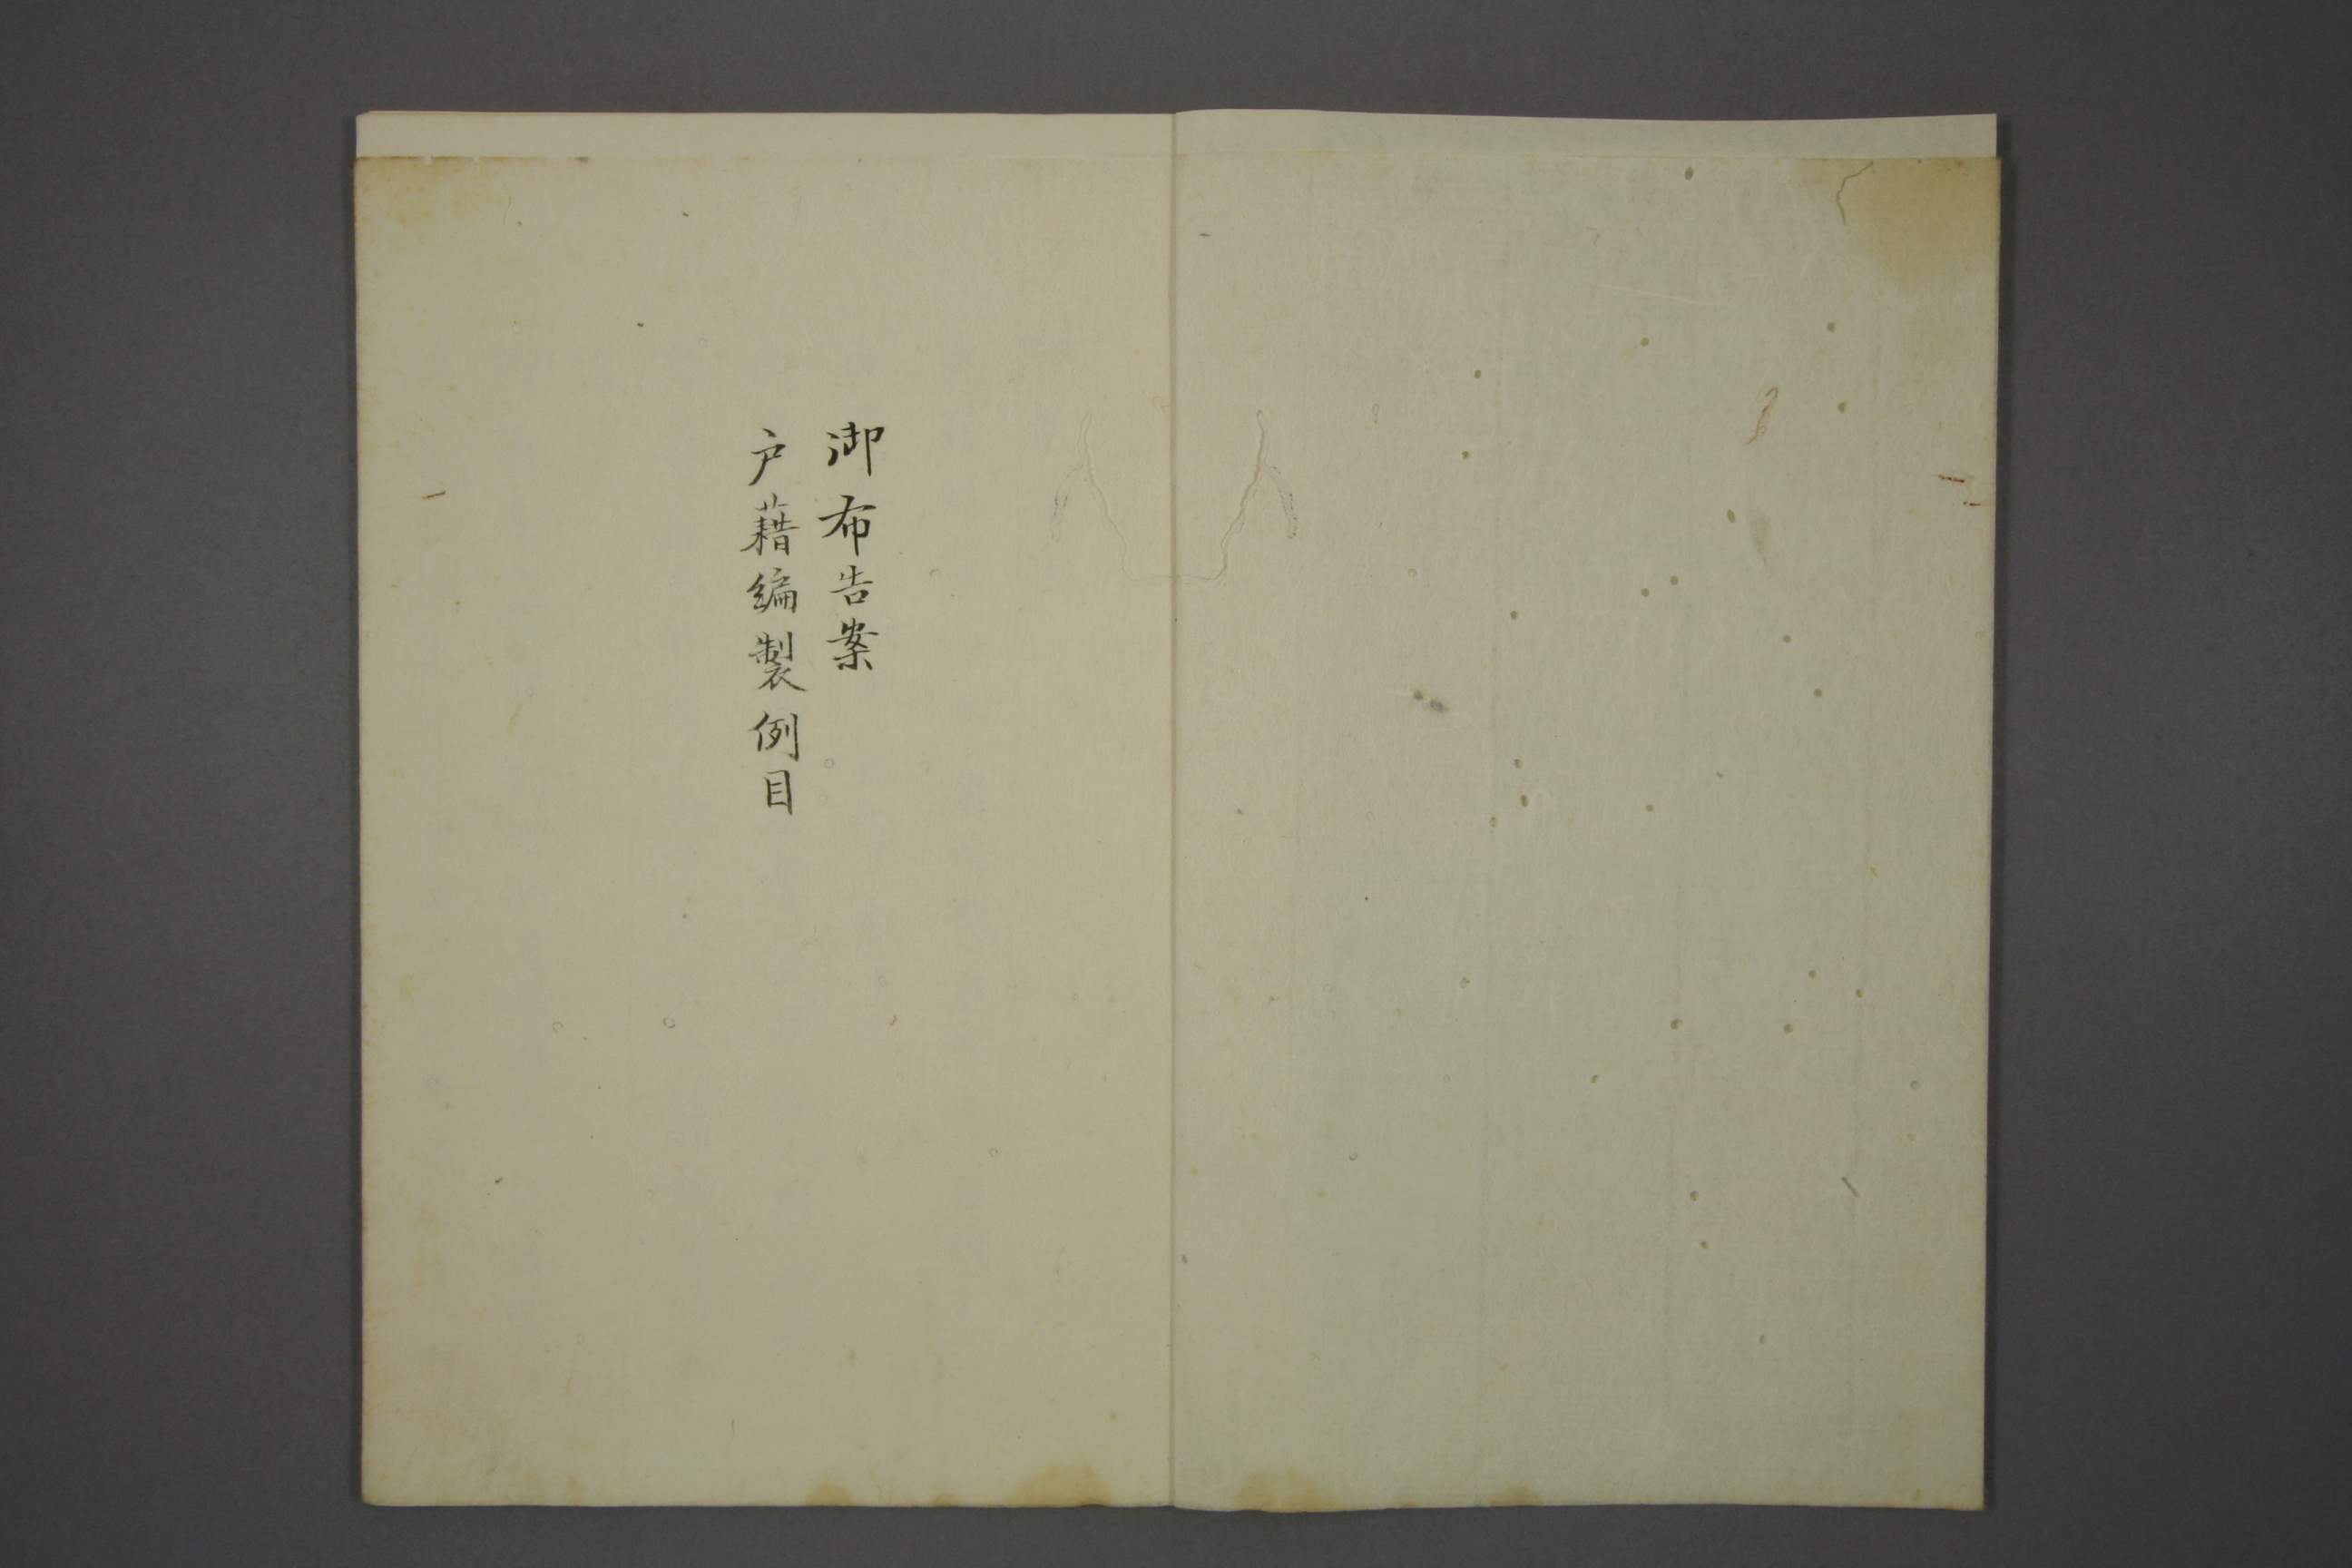 御布告案
戸藉編製例目